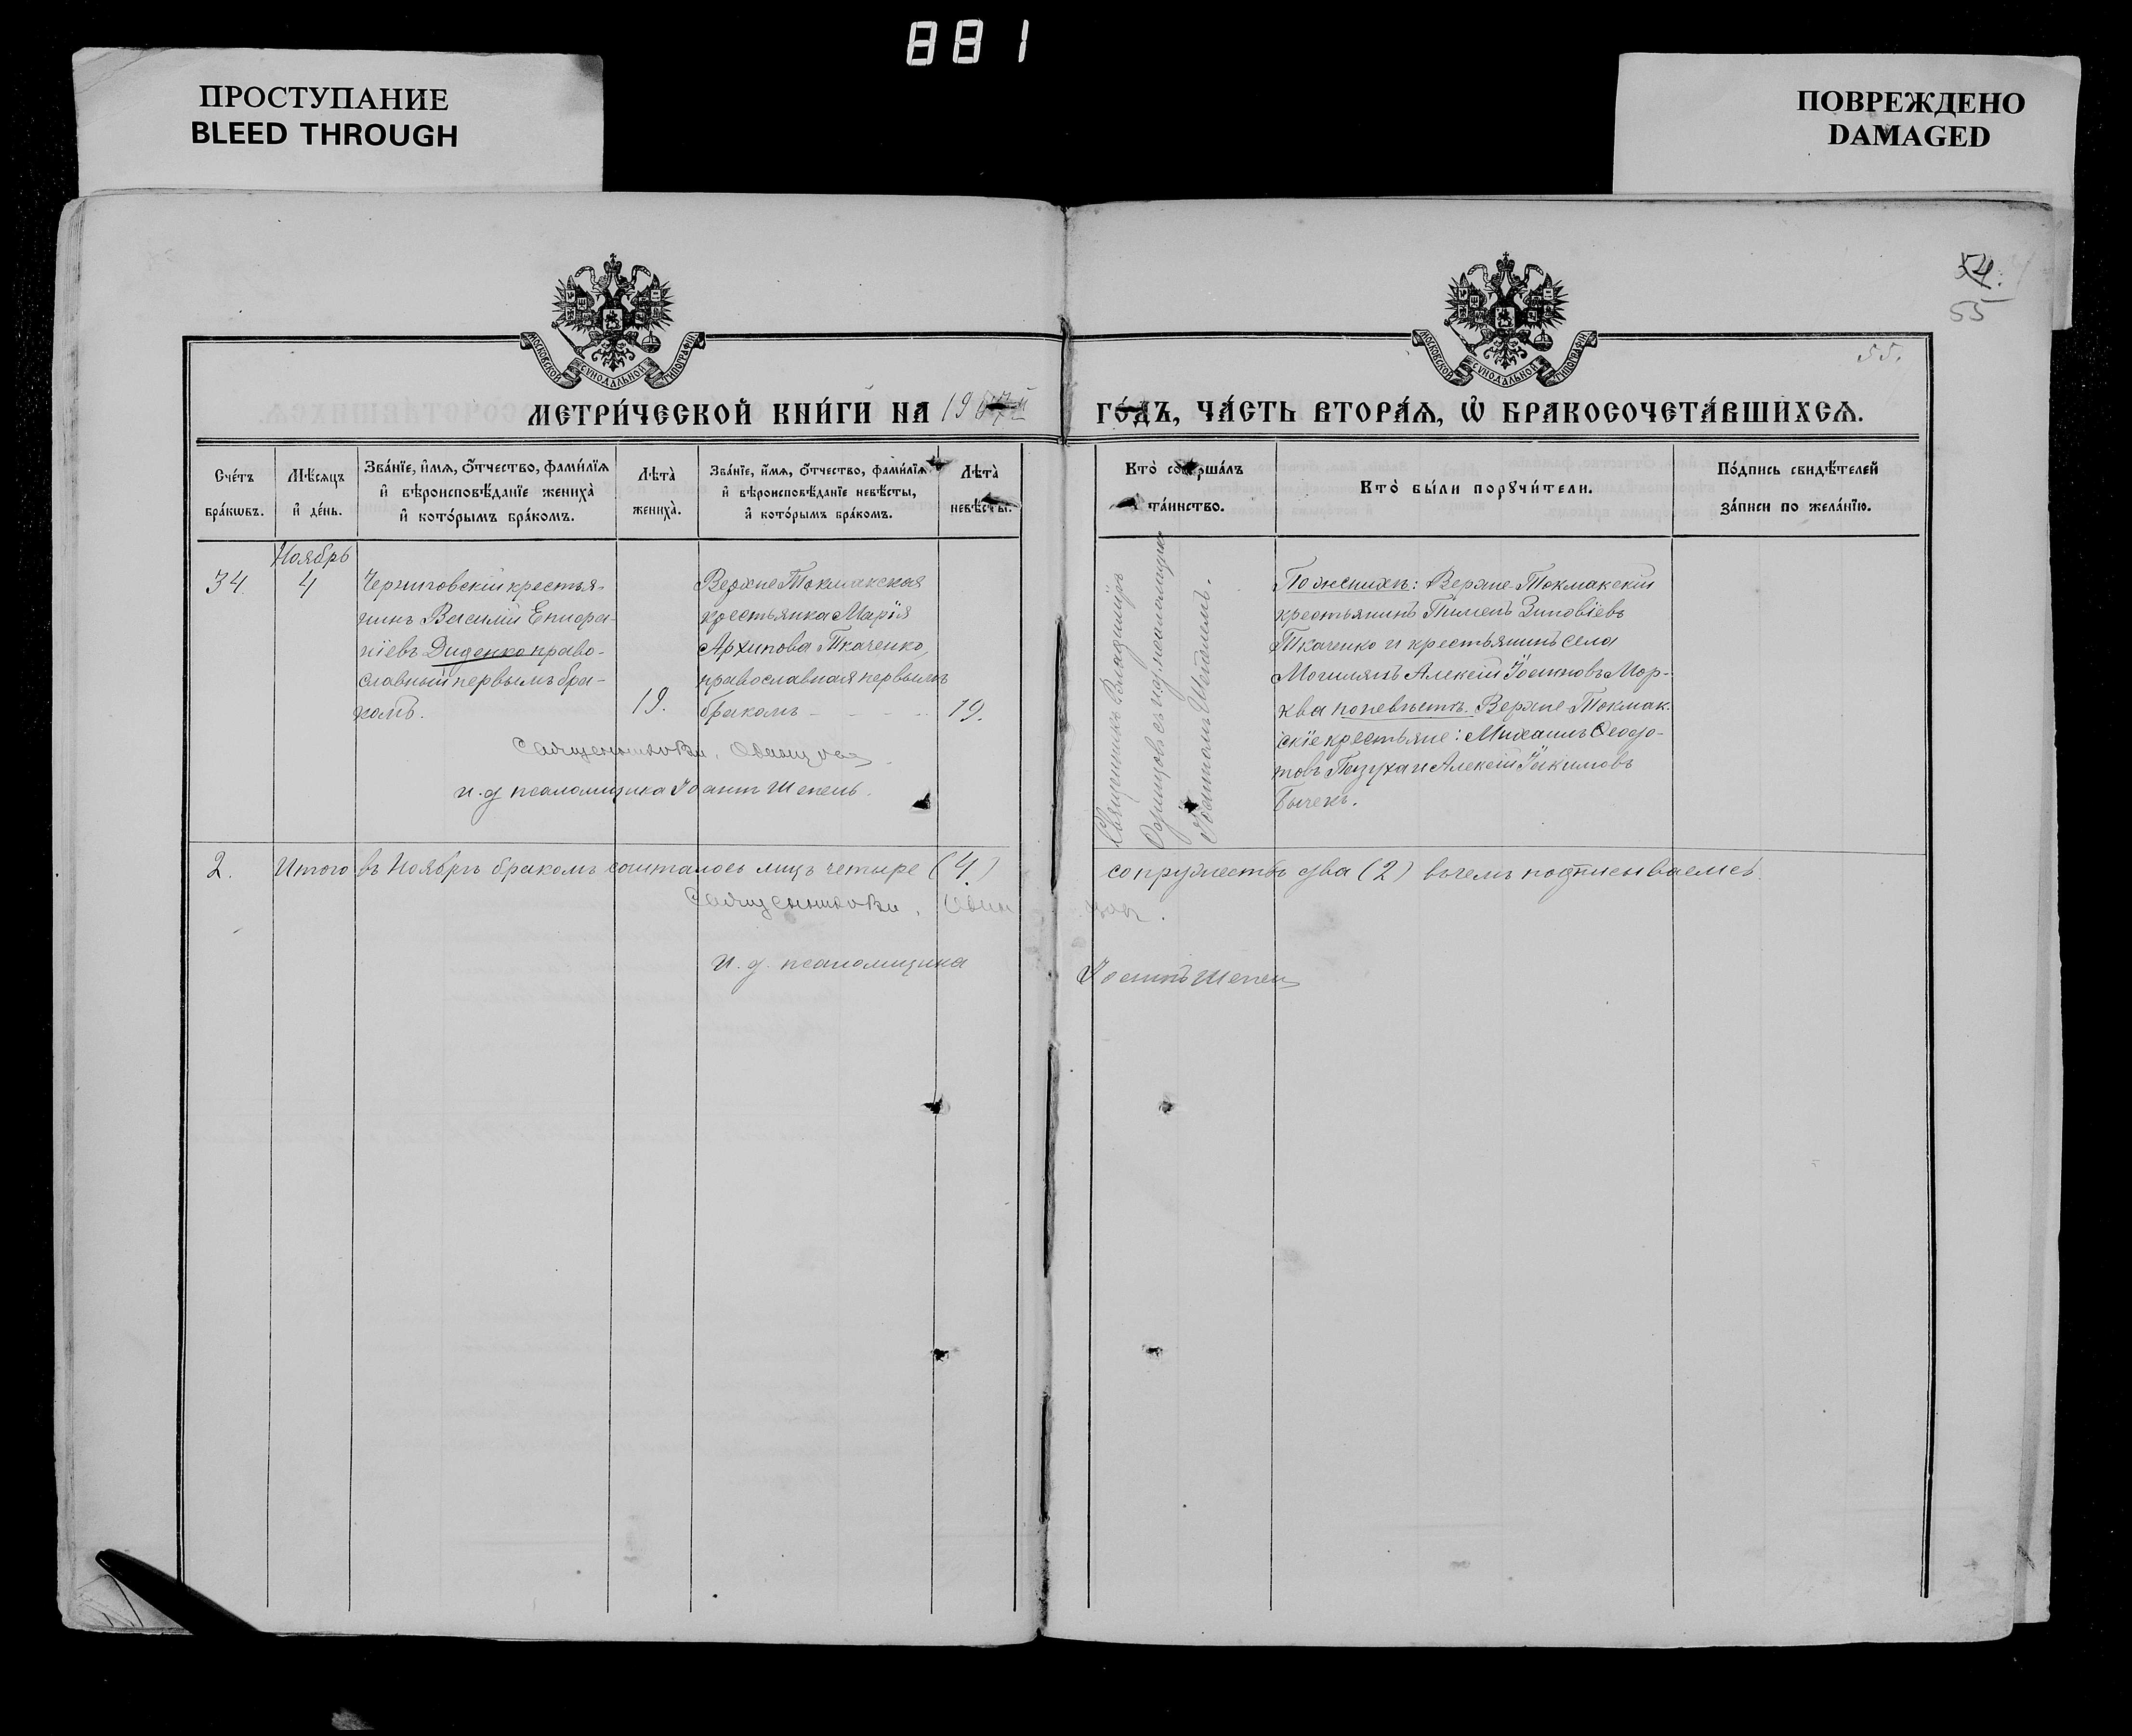 881
ПРОСТУПАНИЕ
BLEED THROUGH
ПОВРЕЖДЕНО
DAMAGED
54.
55
55.
МОСКОВСКОЙ СѴНОДАЛЬНОЙ ТИПОГРАФІИ
МОСКОВСКОЙ СѴНОДАЛЬНОЙ ТИПОГРАФІИ
МЕТРИ́ЧЕСКОЙ КНИ́ГИ НА 19
ГО́ДЪ, ЧА́СТЬ ВТОРА́Ѧ, Ѽ БРАКОСОЧЕТА́ВШИХСѦ.
Сче́тъ
бра́кѡвъ.
Мѣ́сяцъ
и҆ де́нь.
Зва́нїе, и҆́мѧ, ѻ҆́тчество, фами́лїѧ
и҆ вѣроисповѣ́данїе жениха̀
и҆ кото́рымъ бра́комъ.
Лѣта̀
жениха̀.
Зва́нїе, и҆́мѧ, ѻ҆́тчество, фами́лїѧ
и҆ вѣроисповѣ́данїе невѣ́сты,
и҆ кото́рымъ бра́комъ.
Лѣта̀
невѣ́сты.
Кто̀ соверша́лъ
та́инство.
Кто̀ бы́ли порꙋчи́тели.
По́дпись свидѣ́телей
за́писи по жела́нїю.
Ноябрь
34.
4
Черниговскій крестья-
нинъ Василій Епифа-
ніевъ Диденко право-
славный первымъ бра-
комъ.
19.
Верхне Токмакская
крестьянка Марія
Архипова Ткаченко,
православная первымъ
бракомъ
19.
Священникъ Владиміръ
съ и. д. псаломщика
Іоанномъ Шепелемъ.
По женихѣ: Верхне-Токмакскій
крестьянинъ Пименъ Зиновіевъ
Ткаченко и крестьянинъ села
Могилянъ Алексій Іоанновъ Мор-
ква по невѣстѣ: Верхне-Токмак.
скіе крестьяне: Михаилъ Ѳеодо-
товъ Пазуха и Алексій Іакимовъ
Бычекъ.
и. д. псаломщика Іоаннъ Шепель.
2.
Итого въ Ноябрѣ бракомъ сочталось лицъ четыре (4)
супружествъ два (2) въ чемъ подписываемся
и. д. псаломщика
Іоаннъ Шепель